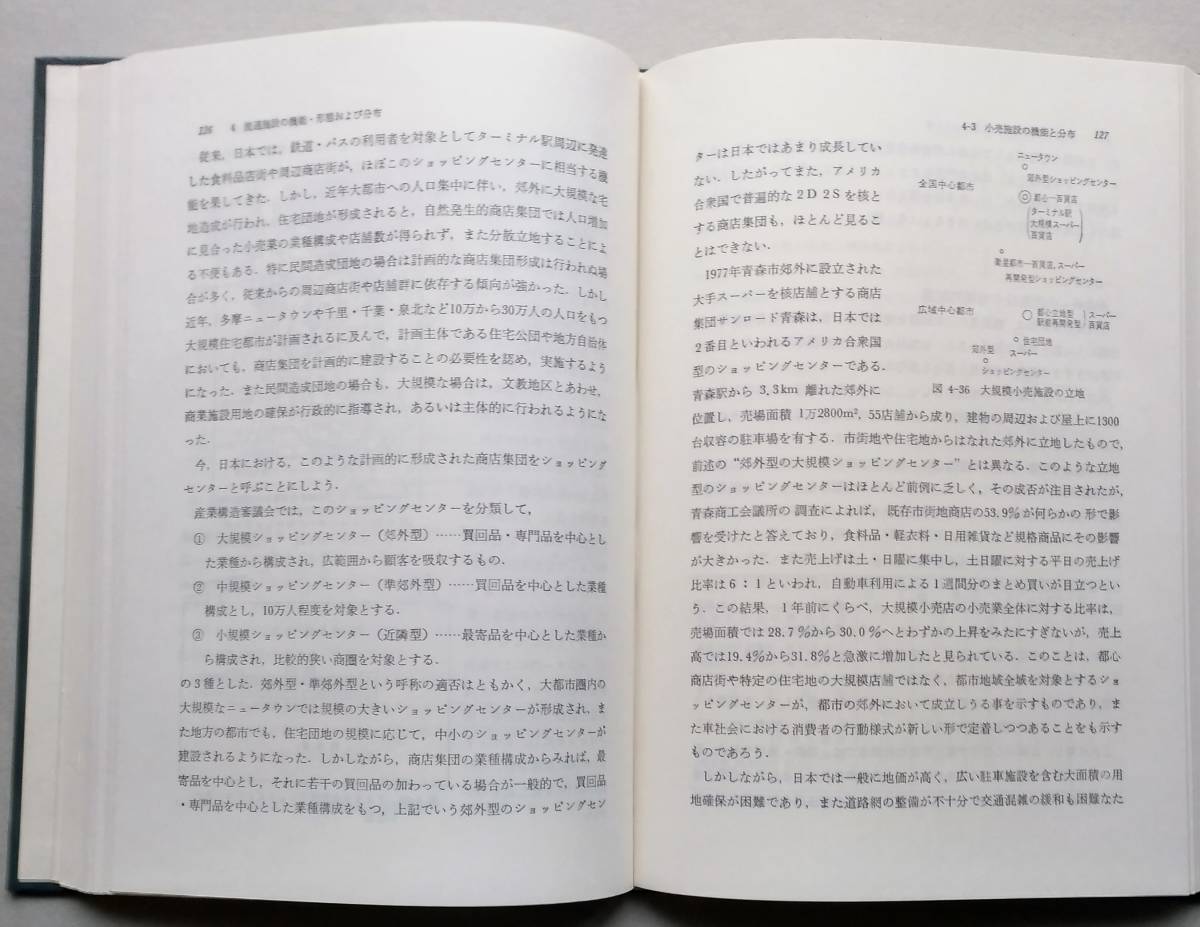 126　4　流通施設の機能・形態および分布
従来，日本では，鉄道・バスの利用者を対象としてターミナル駅周辺に発達
した食料品店街や周辺商店街が，ほぼこのショッピングセンターに相当する機
能を果してきた．しかし，近年大都市への人口集中に伴い，郊外に大規模な宅
地造成が行われ，住宅団地が形成されると，自然発生的商店集団では人口増加
に見合った小売業の業種構成や店舗数が得られず，また分散立地することによ
る不便もある．特に民間造成団地の場合は計画的な商店集団形成は行われぬ場
合が多く，従来からの周辺商店街や店舗群に依存する傾向が強かった．しかし
近年，多摩ニュータウンや千里・千葉・泉北など10万から30万人の人口をもつ
大規模住宅都市が計画されるに及んで，計画主体である住宅公団や地方自治体
においても，商店集団を計画的に建設することの必要性を認め，実施するよう
になった．また民間造成団地の場合も，大規模な場合は，文教地区とあわせ，
商業施設用地の確保が行政的に指導され，あるいは主体的に行われるようにな
った．
今，日本における，このような計画的に形成された商店集団をショッピング
センターと呼ぶことにしよう．
産業構造審議会では，このショッピングセンターを分類して，
① 大規模ショッピングセンター（郊外型）……買回品・専門品を中心とし
た業種から構成され，広範囲から顧客を吸収するもの．
② 中規模ショッピングセンター（準郊外型）……買回品を中心とした業種
構成とし，10万人程度を対象とする．
③ 小規模ショッピングセンター（近隣型）……最寄品を中心とした業種か
ら構成され，比較的狭い商圏を対象とする．
の3種とした．郊外型・準郊外型という呼称の適否はともかく，大都市圏内の
大規模なニュータウンでは規模の大きいショッピングセンターが形成され，ま
た地方の都市でも，住宅団地の規模に応じて，中小のショッピングセンターが
建設されるようになった．しかしながら，商店集団の業種構成からみれば，最
寄品を中心とし，それに若干の買回品の加わっている場合が一般的で，買回品
・専門品を中心とした業種構成をもつ，上記でいう郊外型のショッピングセン
4-3　小売施設の機能と分布　127
ターは日本ではあまり成長してい
ない．したがってまた，アメリカ
合衆国で普遍的な2D2Sを核と
する商店集団も，ほとんど見るこ
とはできない．
1977年青森市郊外に設立された
大手スーパーを核店舗とする商店
集団サンロード青森は，日本では
2番目といわれるアメリカ合衆国
型のショッピングセンターである．
青森駅から 3.3km 離れた郊外に
全国中心都市
ニュータウン
郊外型ショッピングセンター
都心―百貨店
ターミナル駅
大規模スーパー
百貨店
衛星都市―百貨店，スーパー
再開発型ショッピングセンター
広域中心都市
都心立地型 スーパー
駅前再開発型 百貨店
住宅団地
郊外型 スーパー
ショッピングセンター
図 4-36　大規模小売施設の立地
位置し，売場面積 1万2800m²，55店舗から成り，建物の周辺および屋上に1300
台収容の駐車場を有する．市街地や住宅地からはなれた郊外に立地したもので，
前述の“郊外型の大規模ショッピングセンター”とは異なる．このような立地
型のショッピングセンターはほとんど前例に乏しく，その成否が注目されたが，
青森商工会議所の調査によれば，既存市街地商店の53.9％が何らかの形で影
響を受けたと答えており，食料品・軽衣料・日用雑貨など規格商品にその影響
が大きかった．また売上げは土・日曜に集中し，土日曜に対する平日の売上げ
比率は6：1といわれ，自動車利用による1週間分のまとめ買いが目立つとい
う．この結果，1年前にくらべ，大規模小売店の小売業全体に対する比率は，
売場面積では28.7％から30.0％へとわずかの上昇をみたにすぎないが，売上
高では19.4％から31.8％と急激に増加したと見られている．このことは，都心
商店街や特定の住宅地の大規模店舗ではなく，都市地域全域を対象とするショ
ッピングセンターが，都市の郊外において成立しうる事を示すものであり，ま
た車社会における消費者の行動様式が新しい形で定着しつつあることをも示す
ものであろう．
しかしながら，日本では一般に地価が高く，広い駐車施設を含む大面積の用
地確保が困難であり，また道路網の整備が不十分で交通混雑の緩和も困難なた